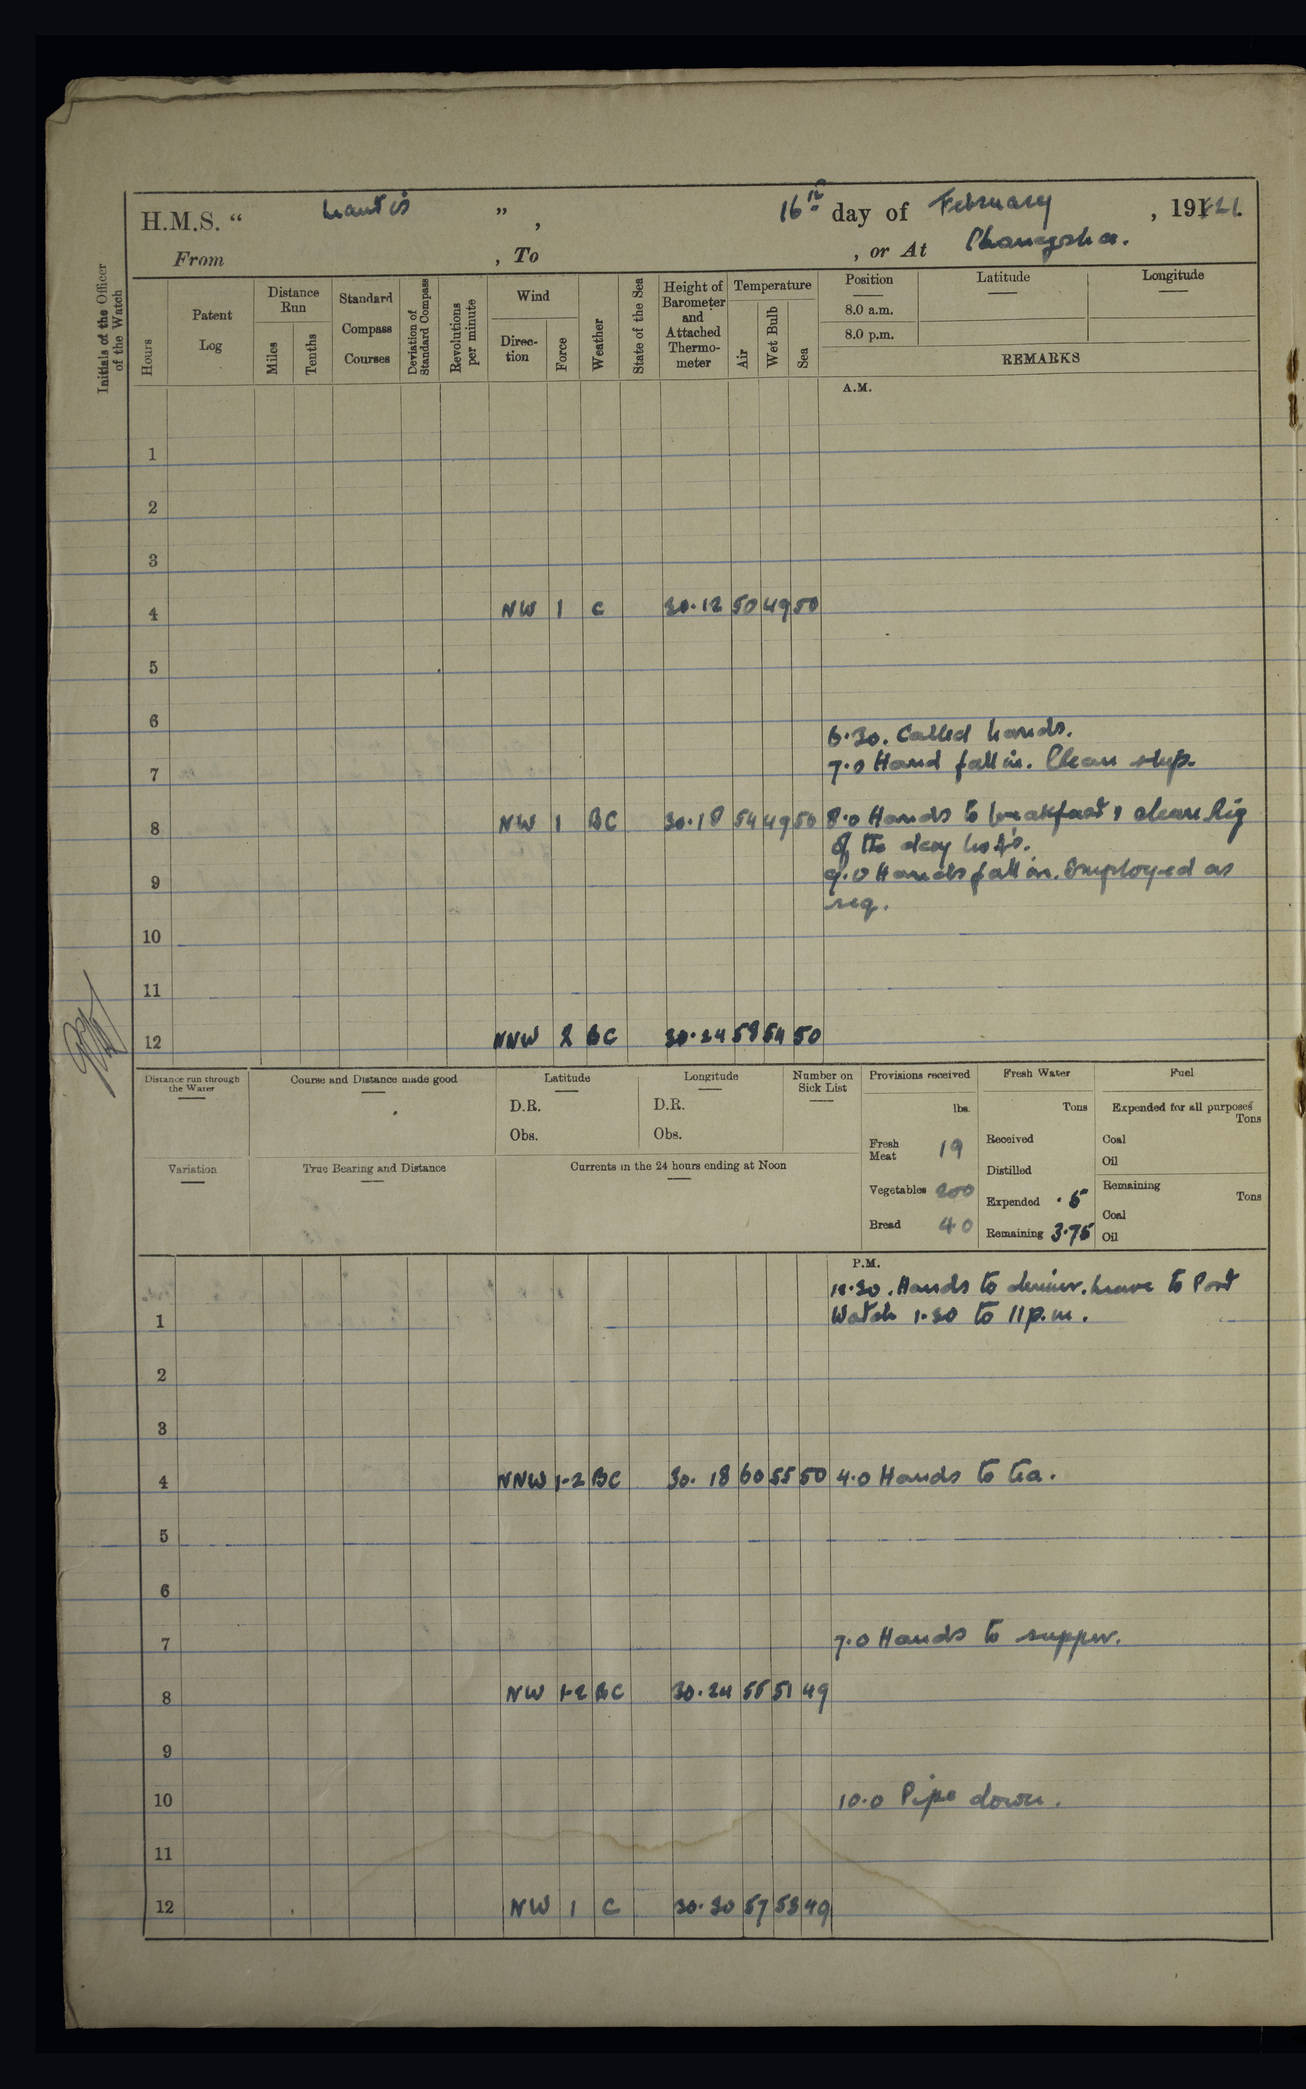 H.M.S. “ Mantis ” , 16th day of February , 1921.
From , To , or At Changsha.
Initials of the Officer of the Watch
Hours
Patent Log
Distance Run
Miles
Tenths
Standard Compass Courses
Deviation of Standard Compass
Revolutions per minute
Wind
Direc-tion
Force
Weather
State of the Sea
Height of Barometer and Attached Thermo-meter
Temperature
Air
Wet Bulb
Sea
Position
8.0 a.m.
8.0 p.m.
Latitude
Longitude
REMARKS
A.M.
1
2
3
4 NW 1 C 30.12 50 49 50
5
6
6.30. Called hands.
7 7.0 Hand fall in. Clean ship.
8 NW 1 BC 30.18 54 49 50 8.0 Hands to breakfast & clean Rig
of the day
9 9.0 Hands fall in. Employed as
req.
10
11
12 NNW 2 BC 30.24 58 54 50
Distance run through the Water
Course and Distance made good
Latitude
D.R.
Obs.
Longitude
D.R.
Obs.
Number on Sick List
Variation
True Bearing and Distance
Currents in the 24 hours ending at Noon
Provisions received
lbs.
Fresh Meat 19
Vegetables 200
Bread 40
Fresh Water
Tons
Received
Distilled
Expended .5
Remaining 3.75
Fuel
Expended for all purposes
Tons
Coal
Oil
Remaining
Tons
Coal
Oil
P.M.
12.30. Hands to dinner. Leave to Port
1 Watch 1.30 to 11 p.m.
2
3
4 NNW 1-2 BC 30.18 60 55 50 4.0 Hands to tea.
5
6
7 7.0 Hands to supper.
8 NW 1-2 BC 30.24 55 51 49
9
10 10.0 Pipe down.
11
12 NW 1 C 30.30 57 53 49